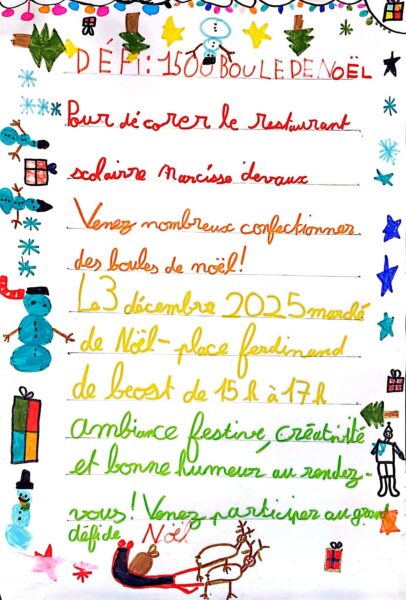 DÉFI: 1500 BOULE DE NOËL
Pour décorer le restaurant
scolairre Narcisse devaux
Venez nombreux confectionner
des boules de noël!
Le 3 décembre 2025 marché
de Nöel - place ferdinand
de beost de 15 h à 17 h
ambiance festive, créativité
et bonne humeur au rendez-
vous! Venez participer au grand
défi de Nöel